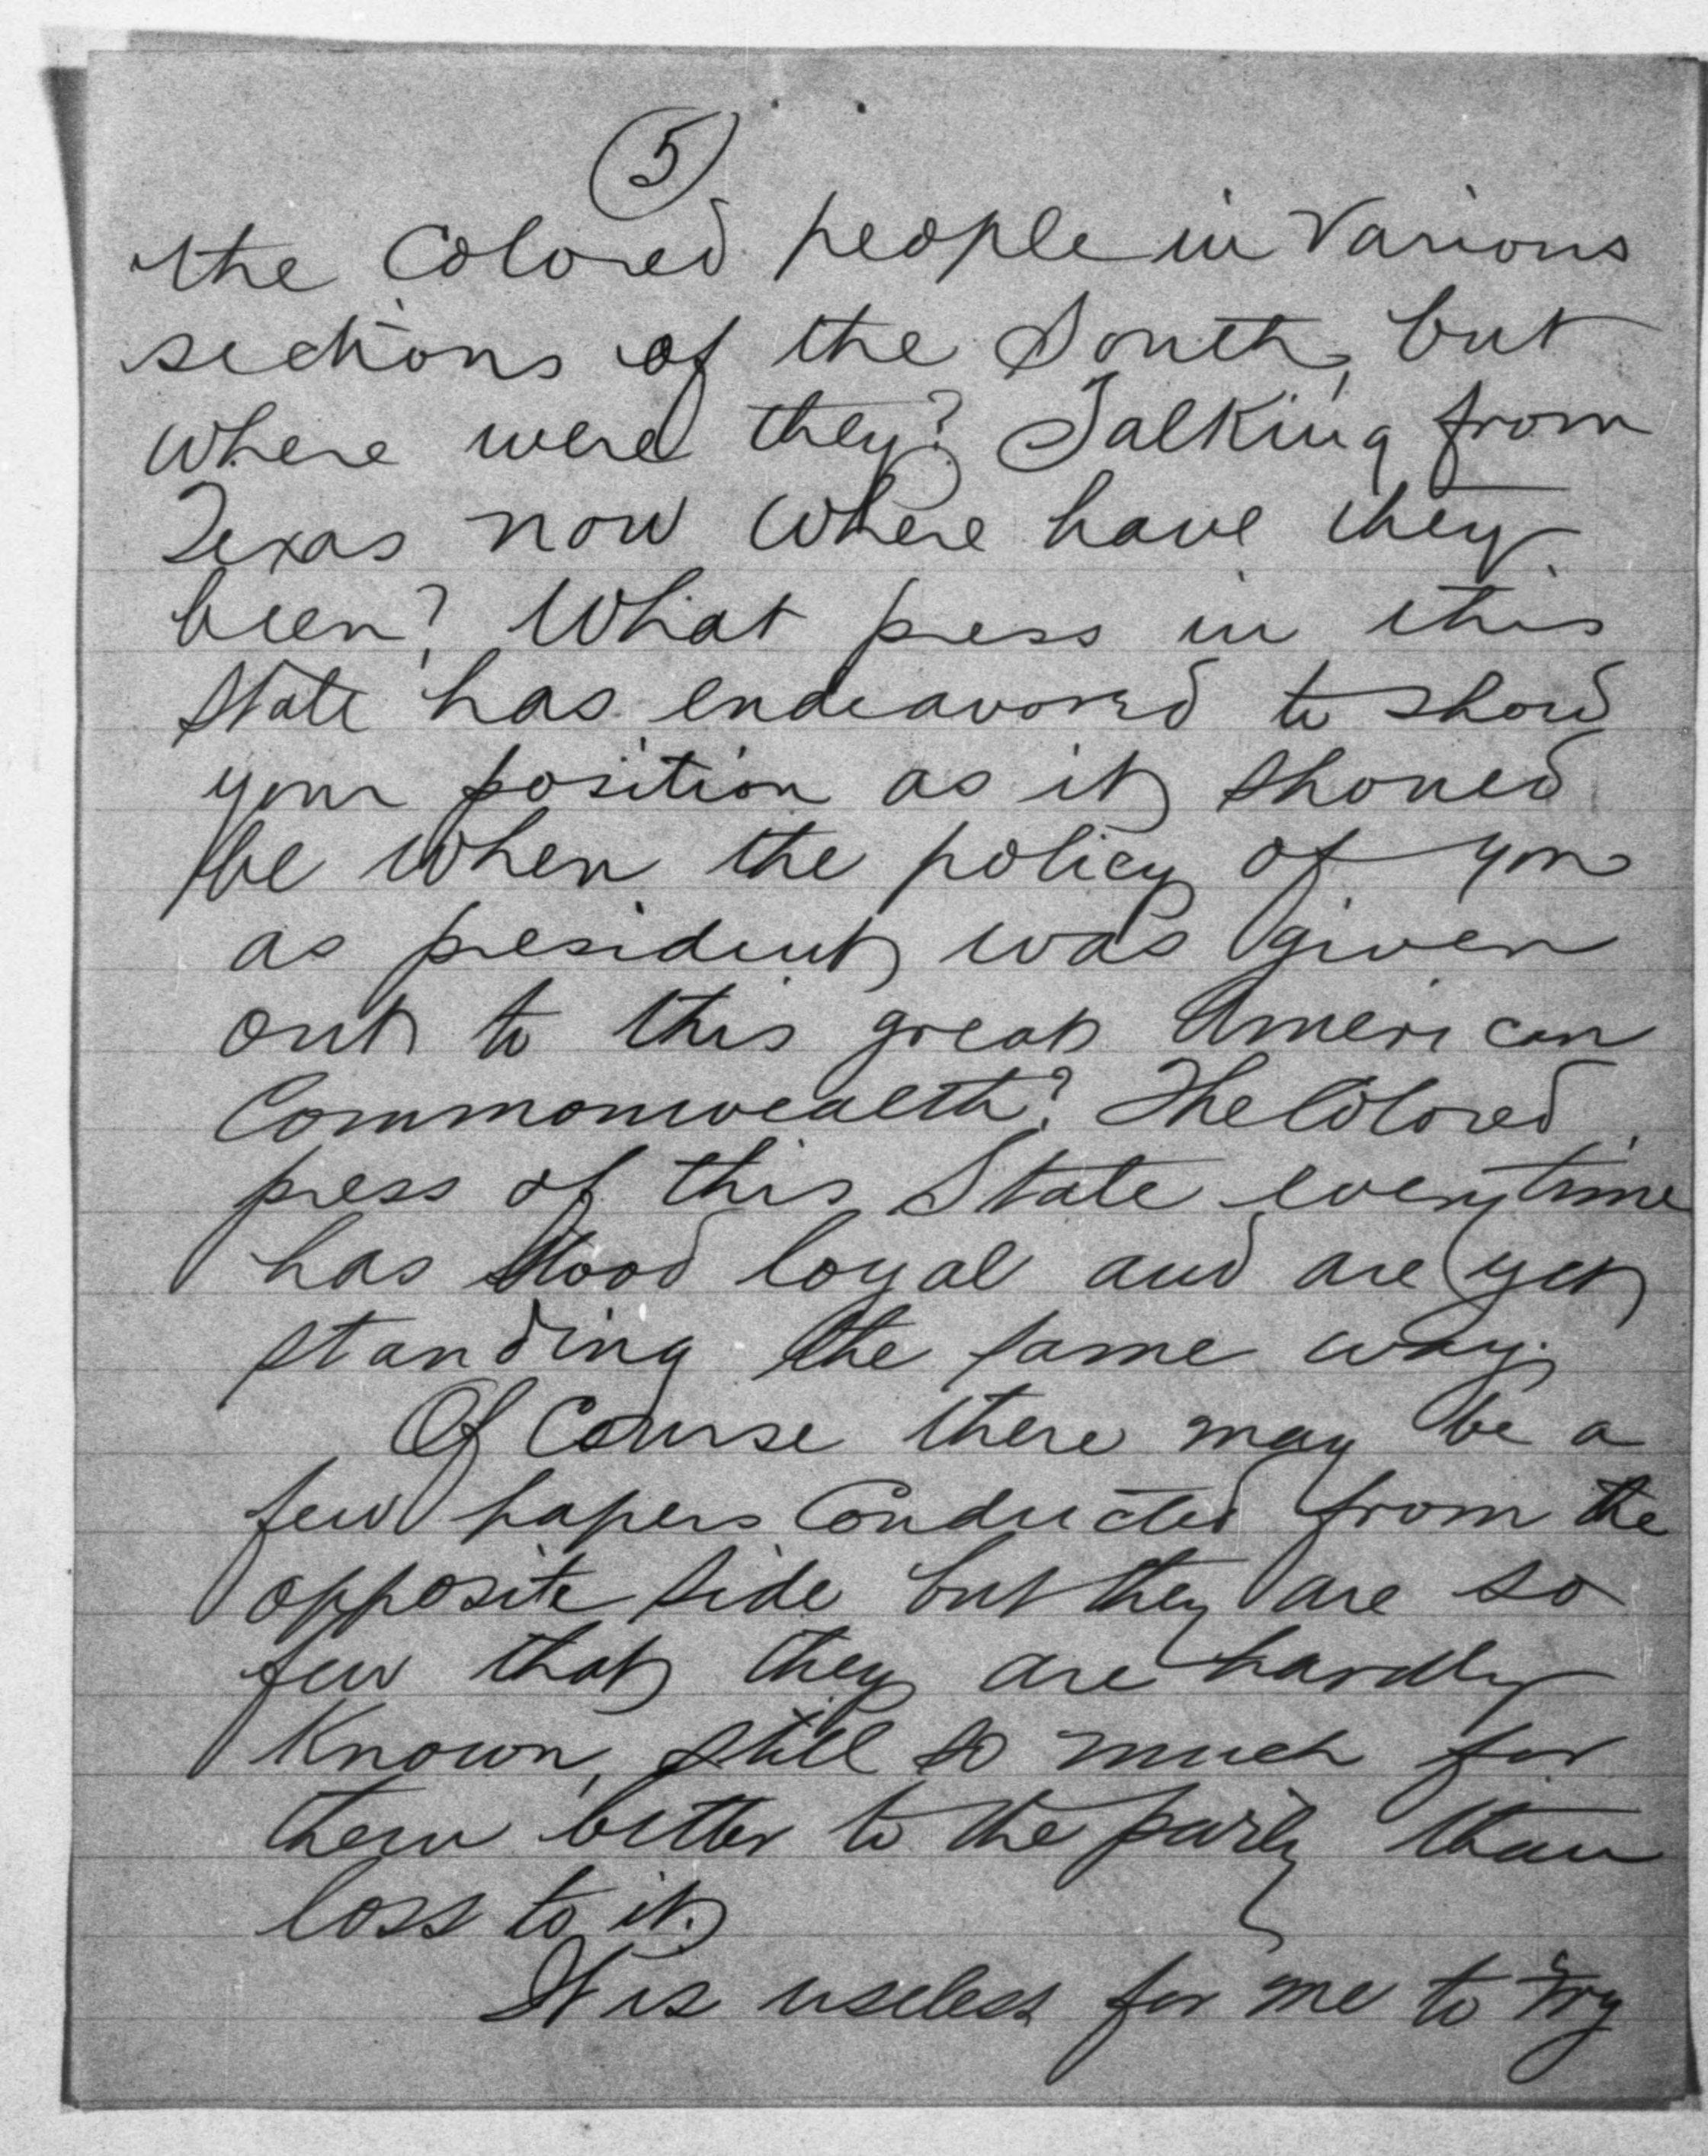 5
the Colored people in Various
sections of the South, but
where were they? Talking from
Texas now where have they
been? What press in this
State has endeavored to show
your position as it shoued
be when the policy of you
as president was given
out to this great American
Commonwealth? The Colored
press of this State everytime
has stood loyal and are yet
standing the same way.
Of Course there may be a
few papers Conducted from the
opposite side but they are so
few that they are hardly
Known, still so much for
them better to the party than
loss to it.
It is useless for me to try